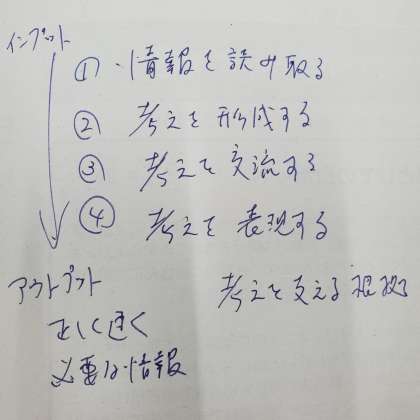 インプット
① 情報を読み取る
② 考えを形成する
③ 考えを交流する
④ 考えを表現する
アウトプット
考えを支える根拠
正しく速く
必要な情報